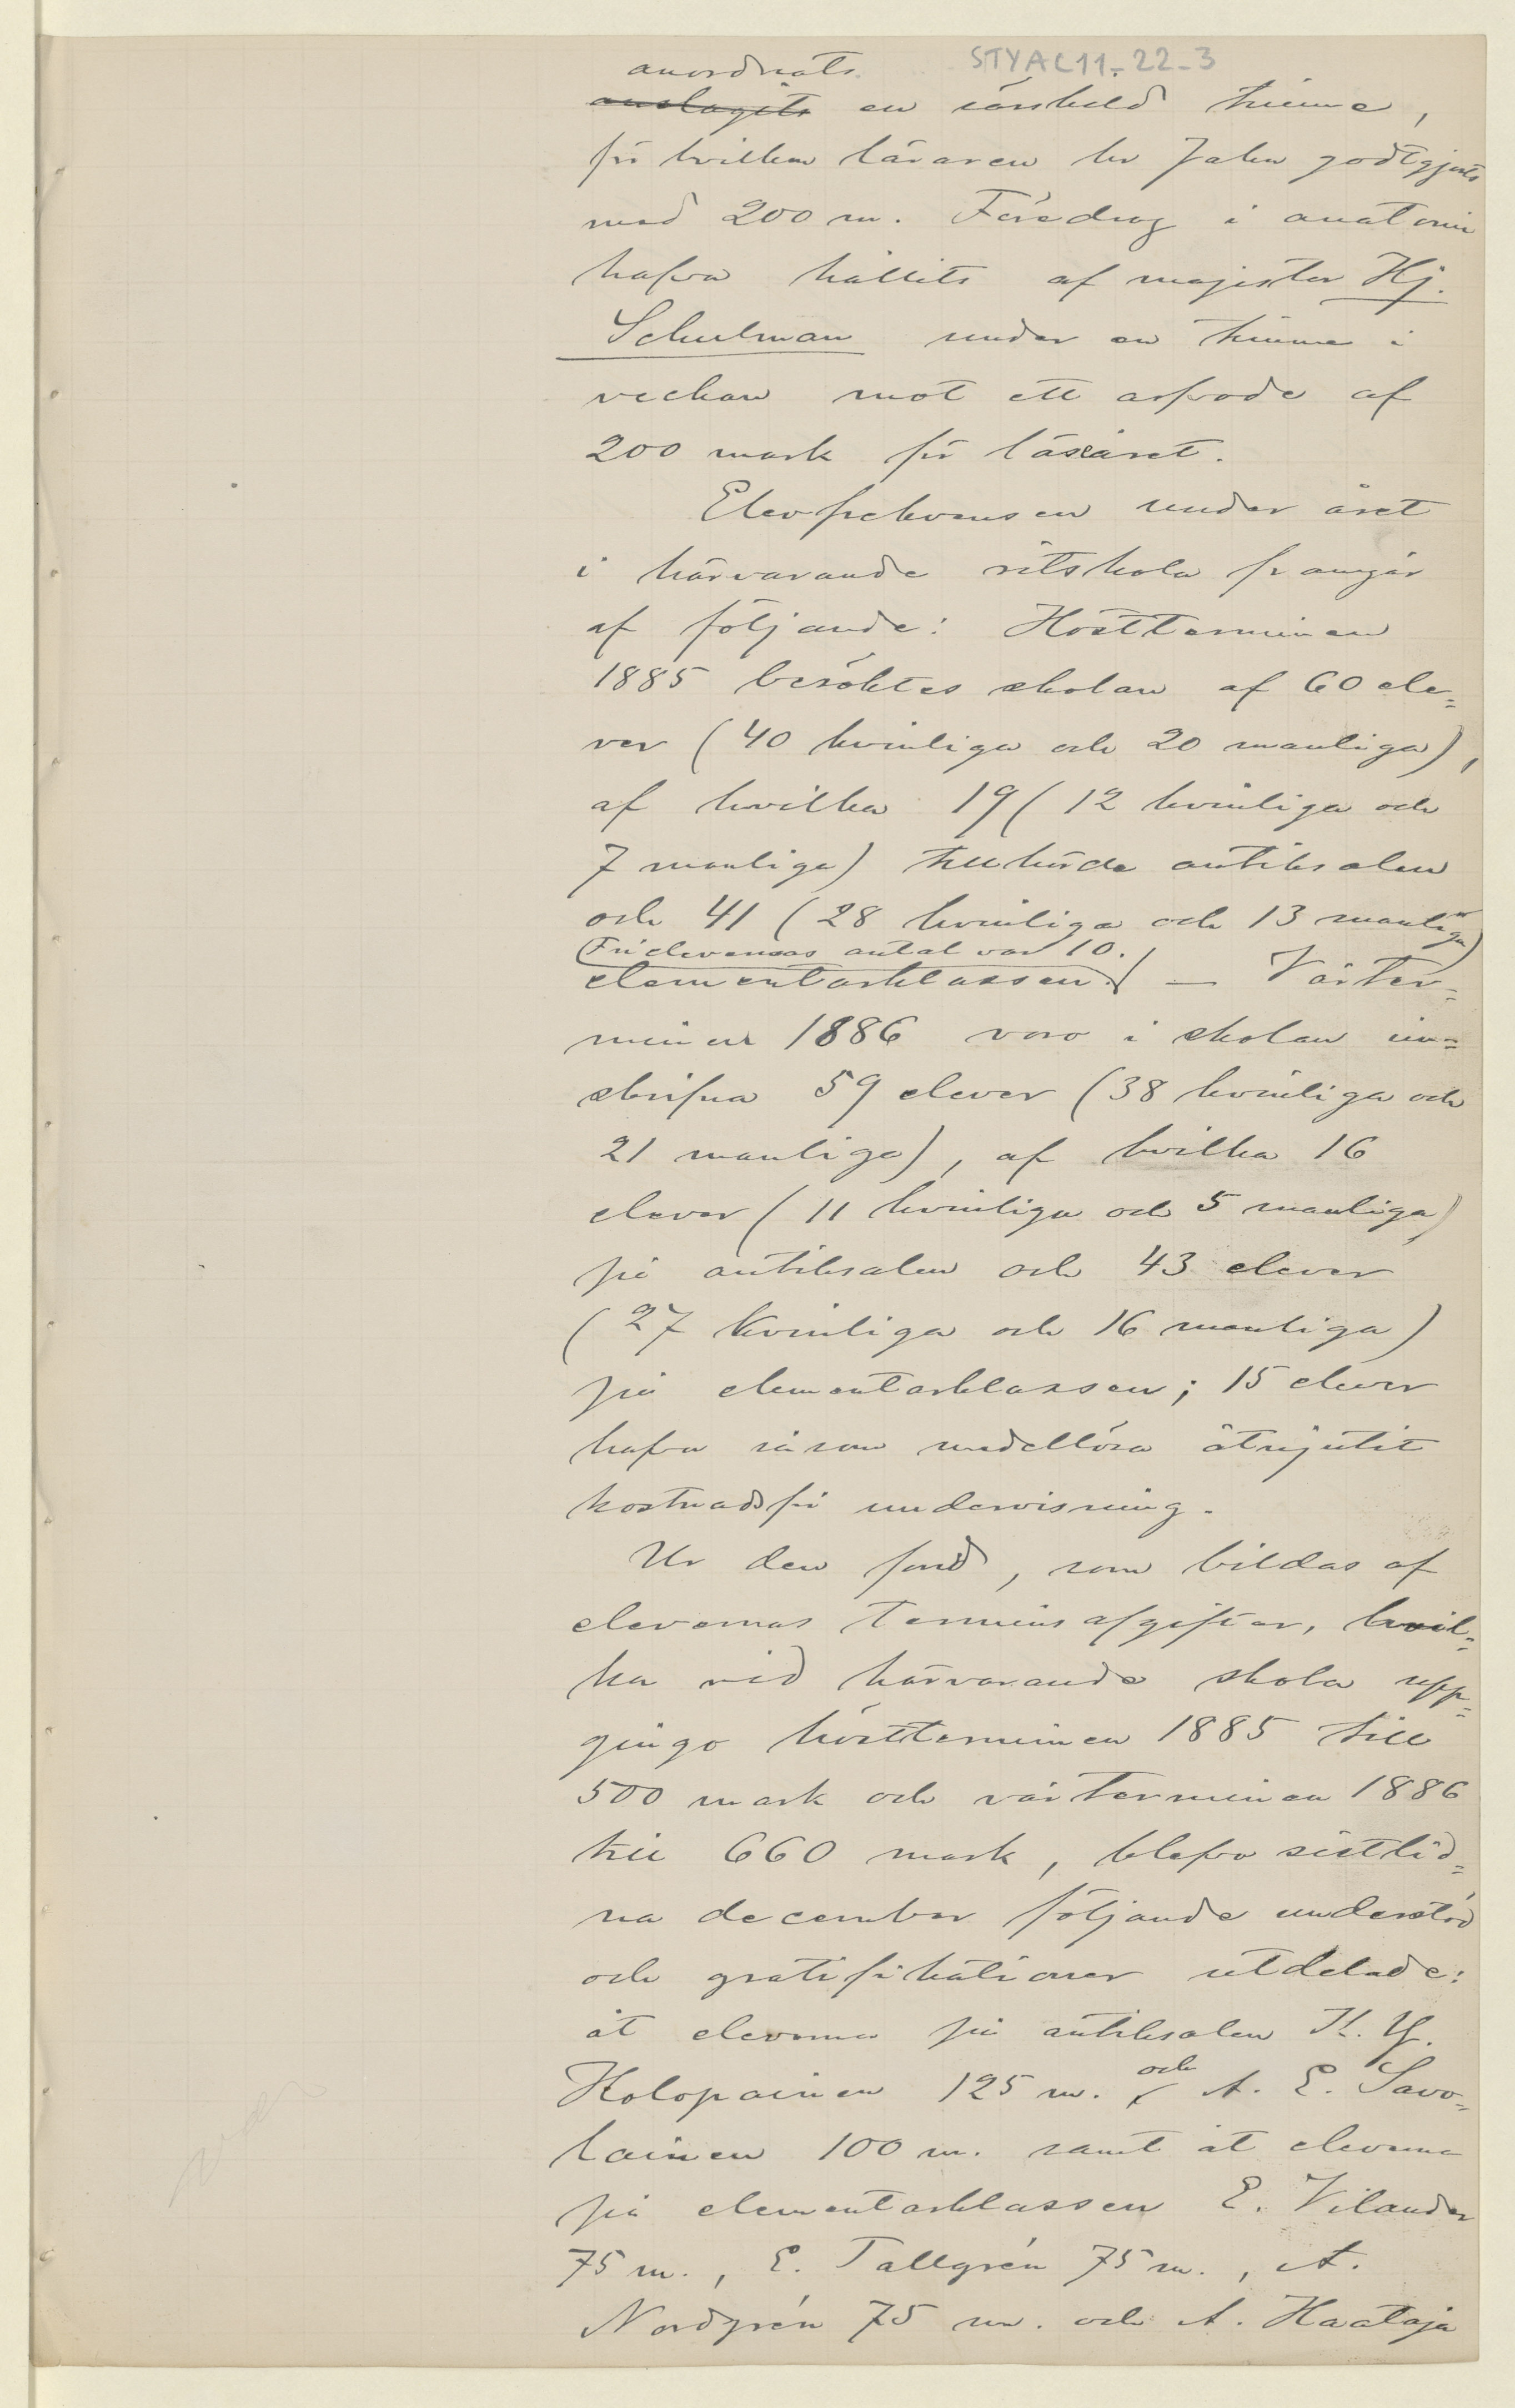 STYAC11-22-3
anordnats
anslagits en särskild timme,
för hvilken läraren hr Jahn godtgjorts
med 200 m. Föredrag i anatomi
hafva hållits af magister Hj.
Schulman under en timme i
veckan mot ett arfvode af
200 mark för läseåret.
Elevfrekvensen under året
i härvarande ritskola framgår
af följande: Höstterminen
1885 besöktes skolan af 60 ele=
ver (40 kvinliga och 20 manliga),
af hvilka 19 (12 kvinliga och
7 manliga) tillhörde antiksalen
och 41 (28 kvinliga och 13 manliga)
Frielevernas antal var 10.
elementarklassen. — Vårter=
minen 1886 voro i skolan in=
skrifna 59 elever (38 kvinliga och
21 manliga), af hvilka 16
elever (11 kvinliga och 5 manliga)
på antiksalen och 43 elever
(27 kvinliga och 16 manliga)
på elementarklassen; 15 elever
hafva såsom medellösa åtnjutit
kostnadsfri undervisning.
Ur den fond, som bildas af
elevernas terminsafgifter, hvil=
ka vid härvarande skola upp=
gingo höstterminen 1885 till
500 mark och vårterminen 1886
till 660 mark, blefvo sistlid=
na december följande understöd
och gratifikationer utdelade:
åt eleverna på antiksalen K. Hj.
och
Holopainen 125 m. A. E. Savo=
lainen 100 m. samt åt eleverna
på elementarklassen E. Vilander
75 m., E. Tallgrén 75 m., A.
Nordgrén 75 m. och A. Haataja